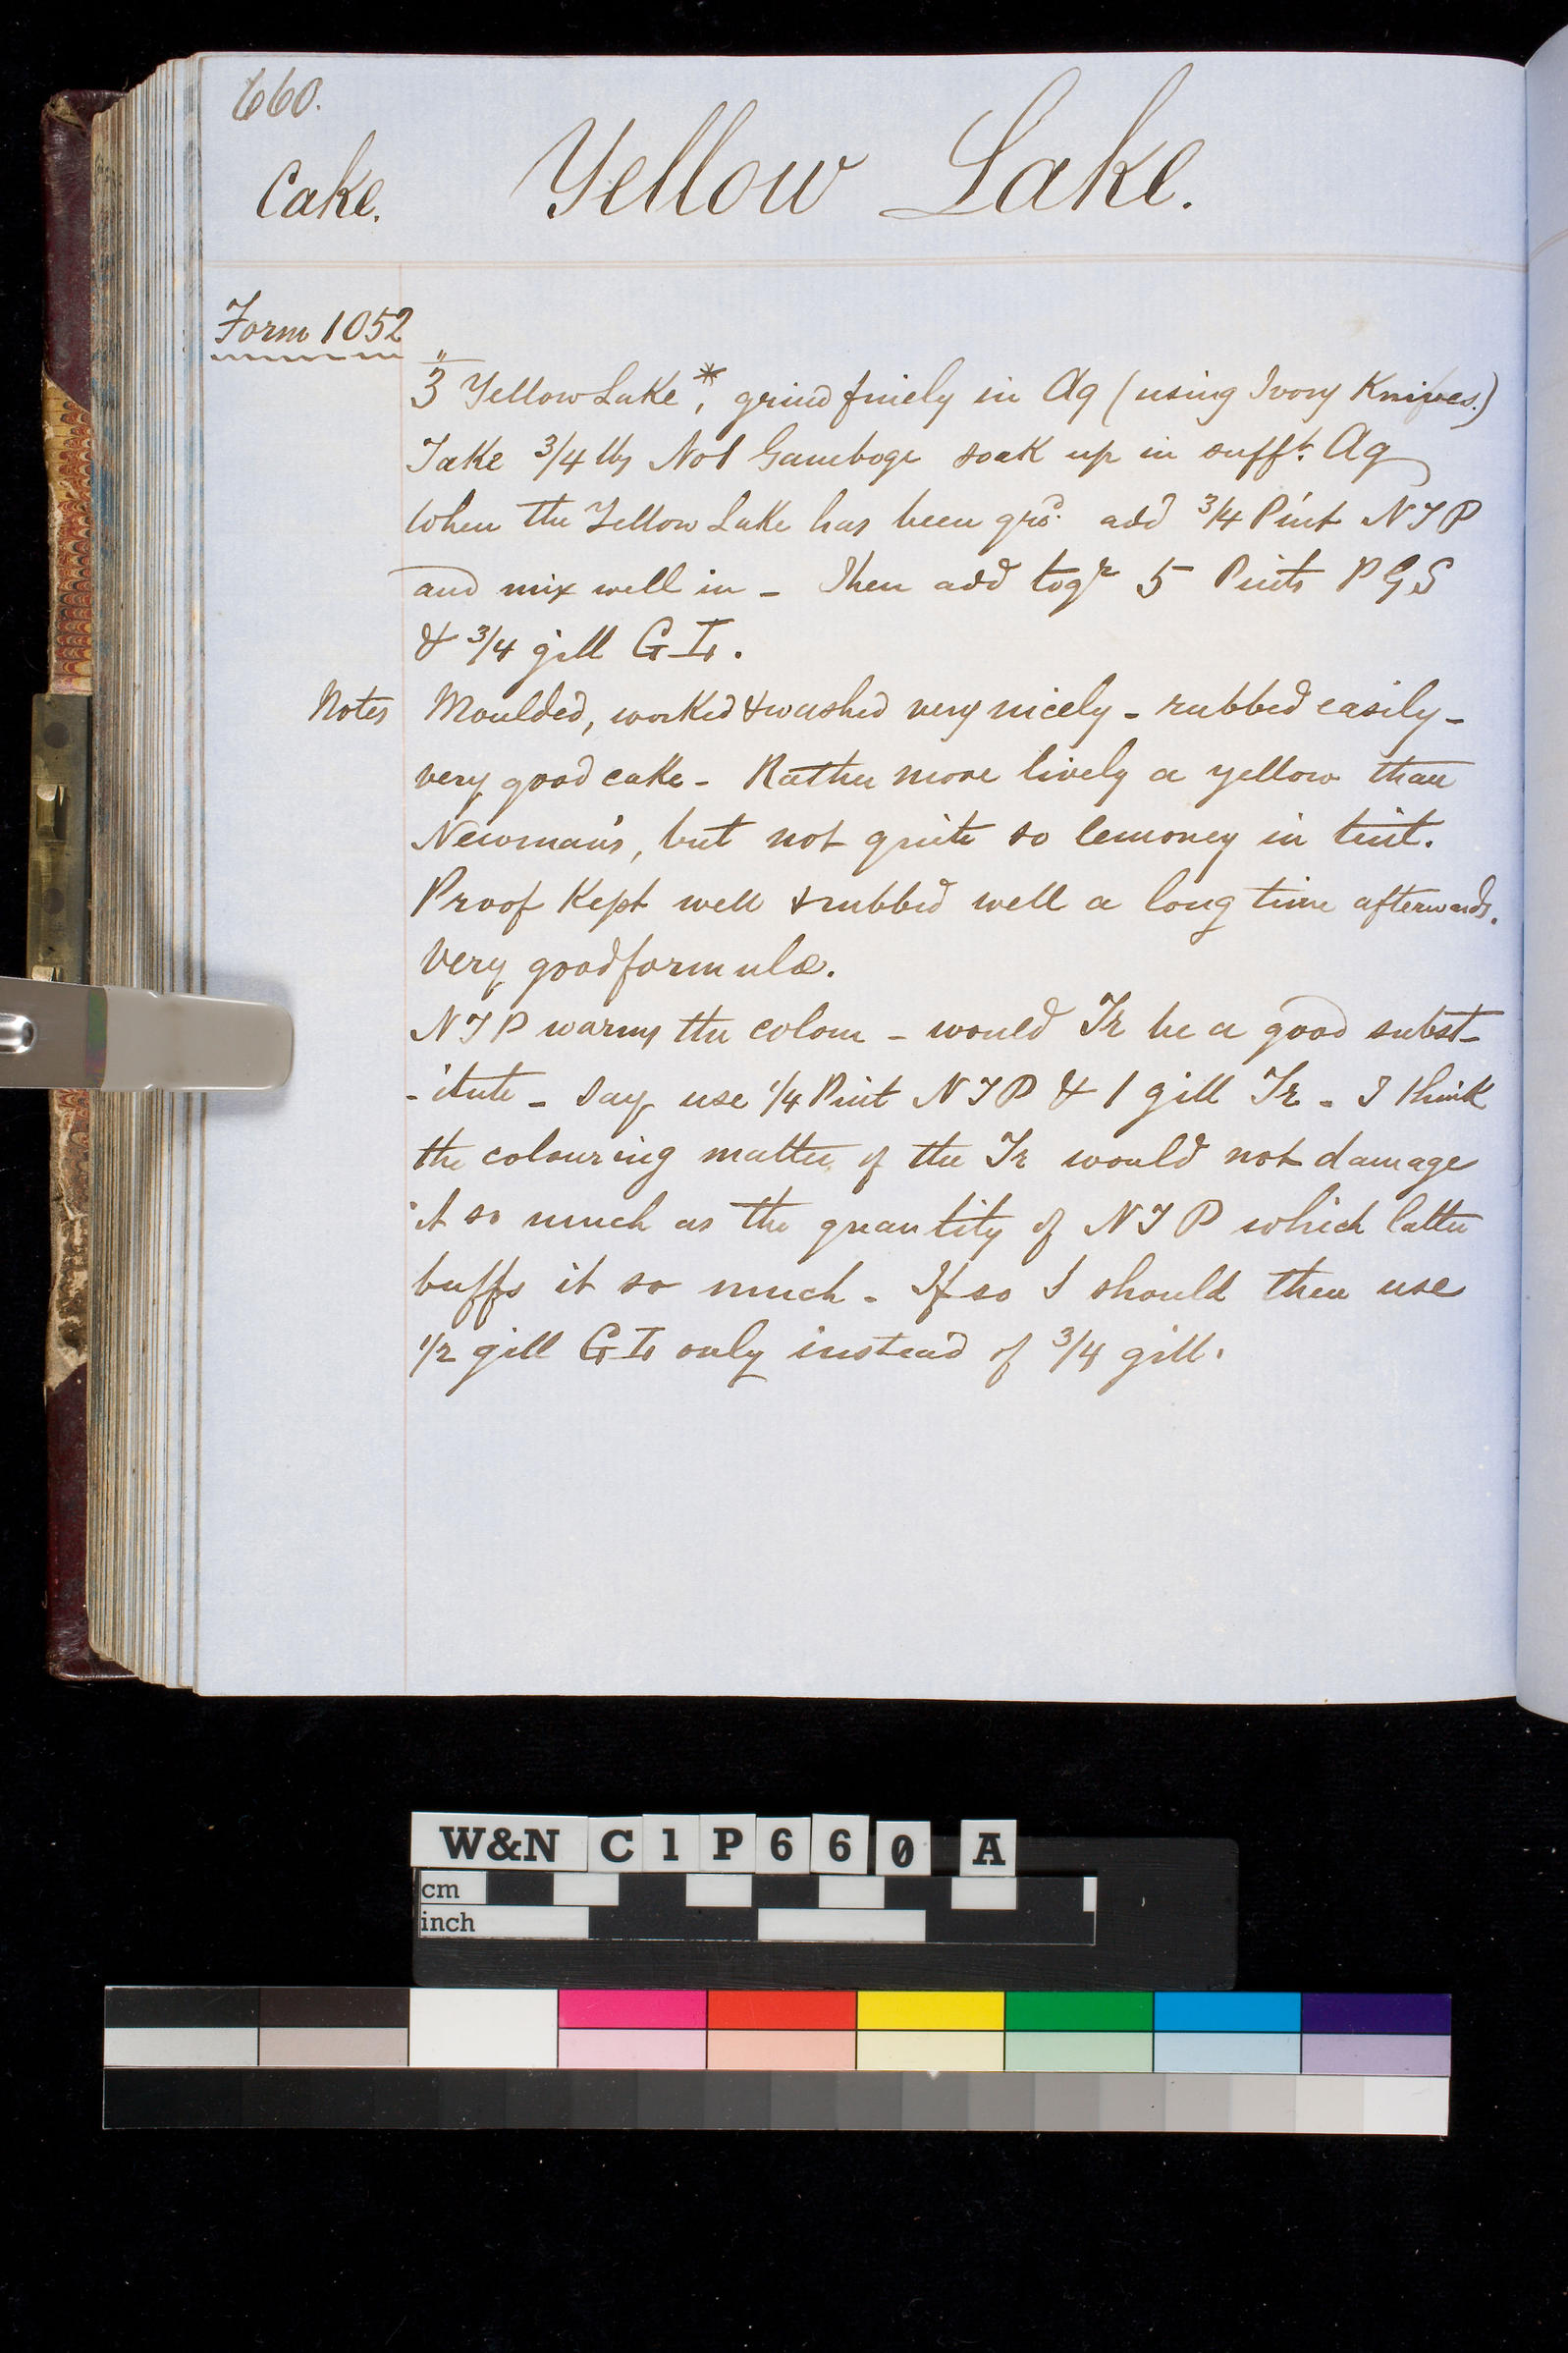 660.
Cake. Yellow Lake.
Form 1052
3 Yellow Lake*, grind finely in Aq (using Ivory Knives.)
Take 3/4 lbs No1 Gamboge soak up in sufft. Aq
When the Yellow Lake has been grd. add 3/4 Pint NTP
and mix well in - Then add togr 5 Pints PGS
& 3/4 gill GI.
Notes Moulded, worked & washed very nicely - rubbed easily -
very good cake - Rather more lively a yellow than
Newman's, but not quite so lemoney in tint.
Proof Kept well & rubbed well a long time afterwards.
Very good formula.
NTP warms the colour - would Tr be a good subst-
-itute - Say use 1/4 Pint NTP & 1 gill Tr - I think
the colouring matter of the Tr would not damage
it so much as the quantity of NTP which latter
buffs it so much - If so I should then use
1/2 gill GI only instead of 3/4 gill.
W&N C1P660 A
cm
inch